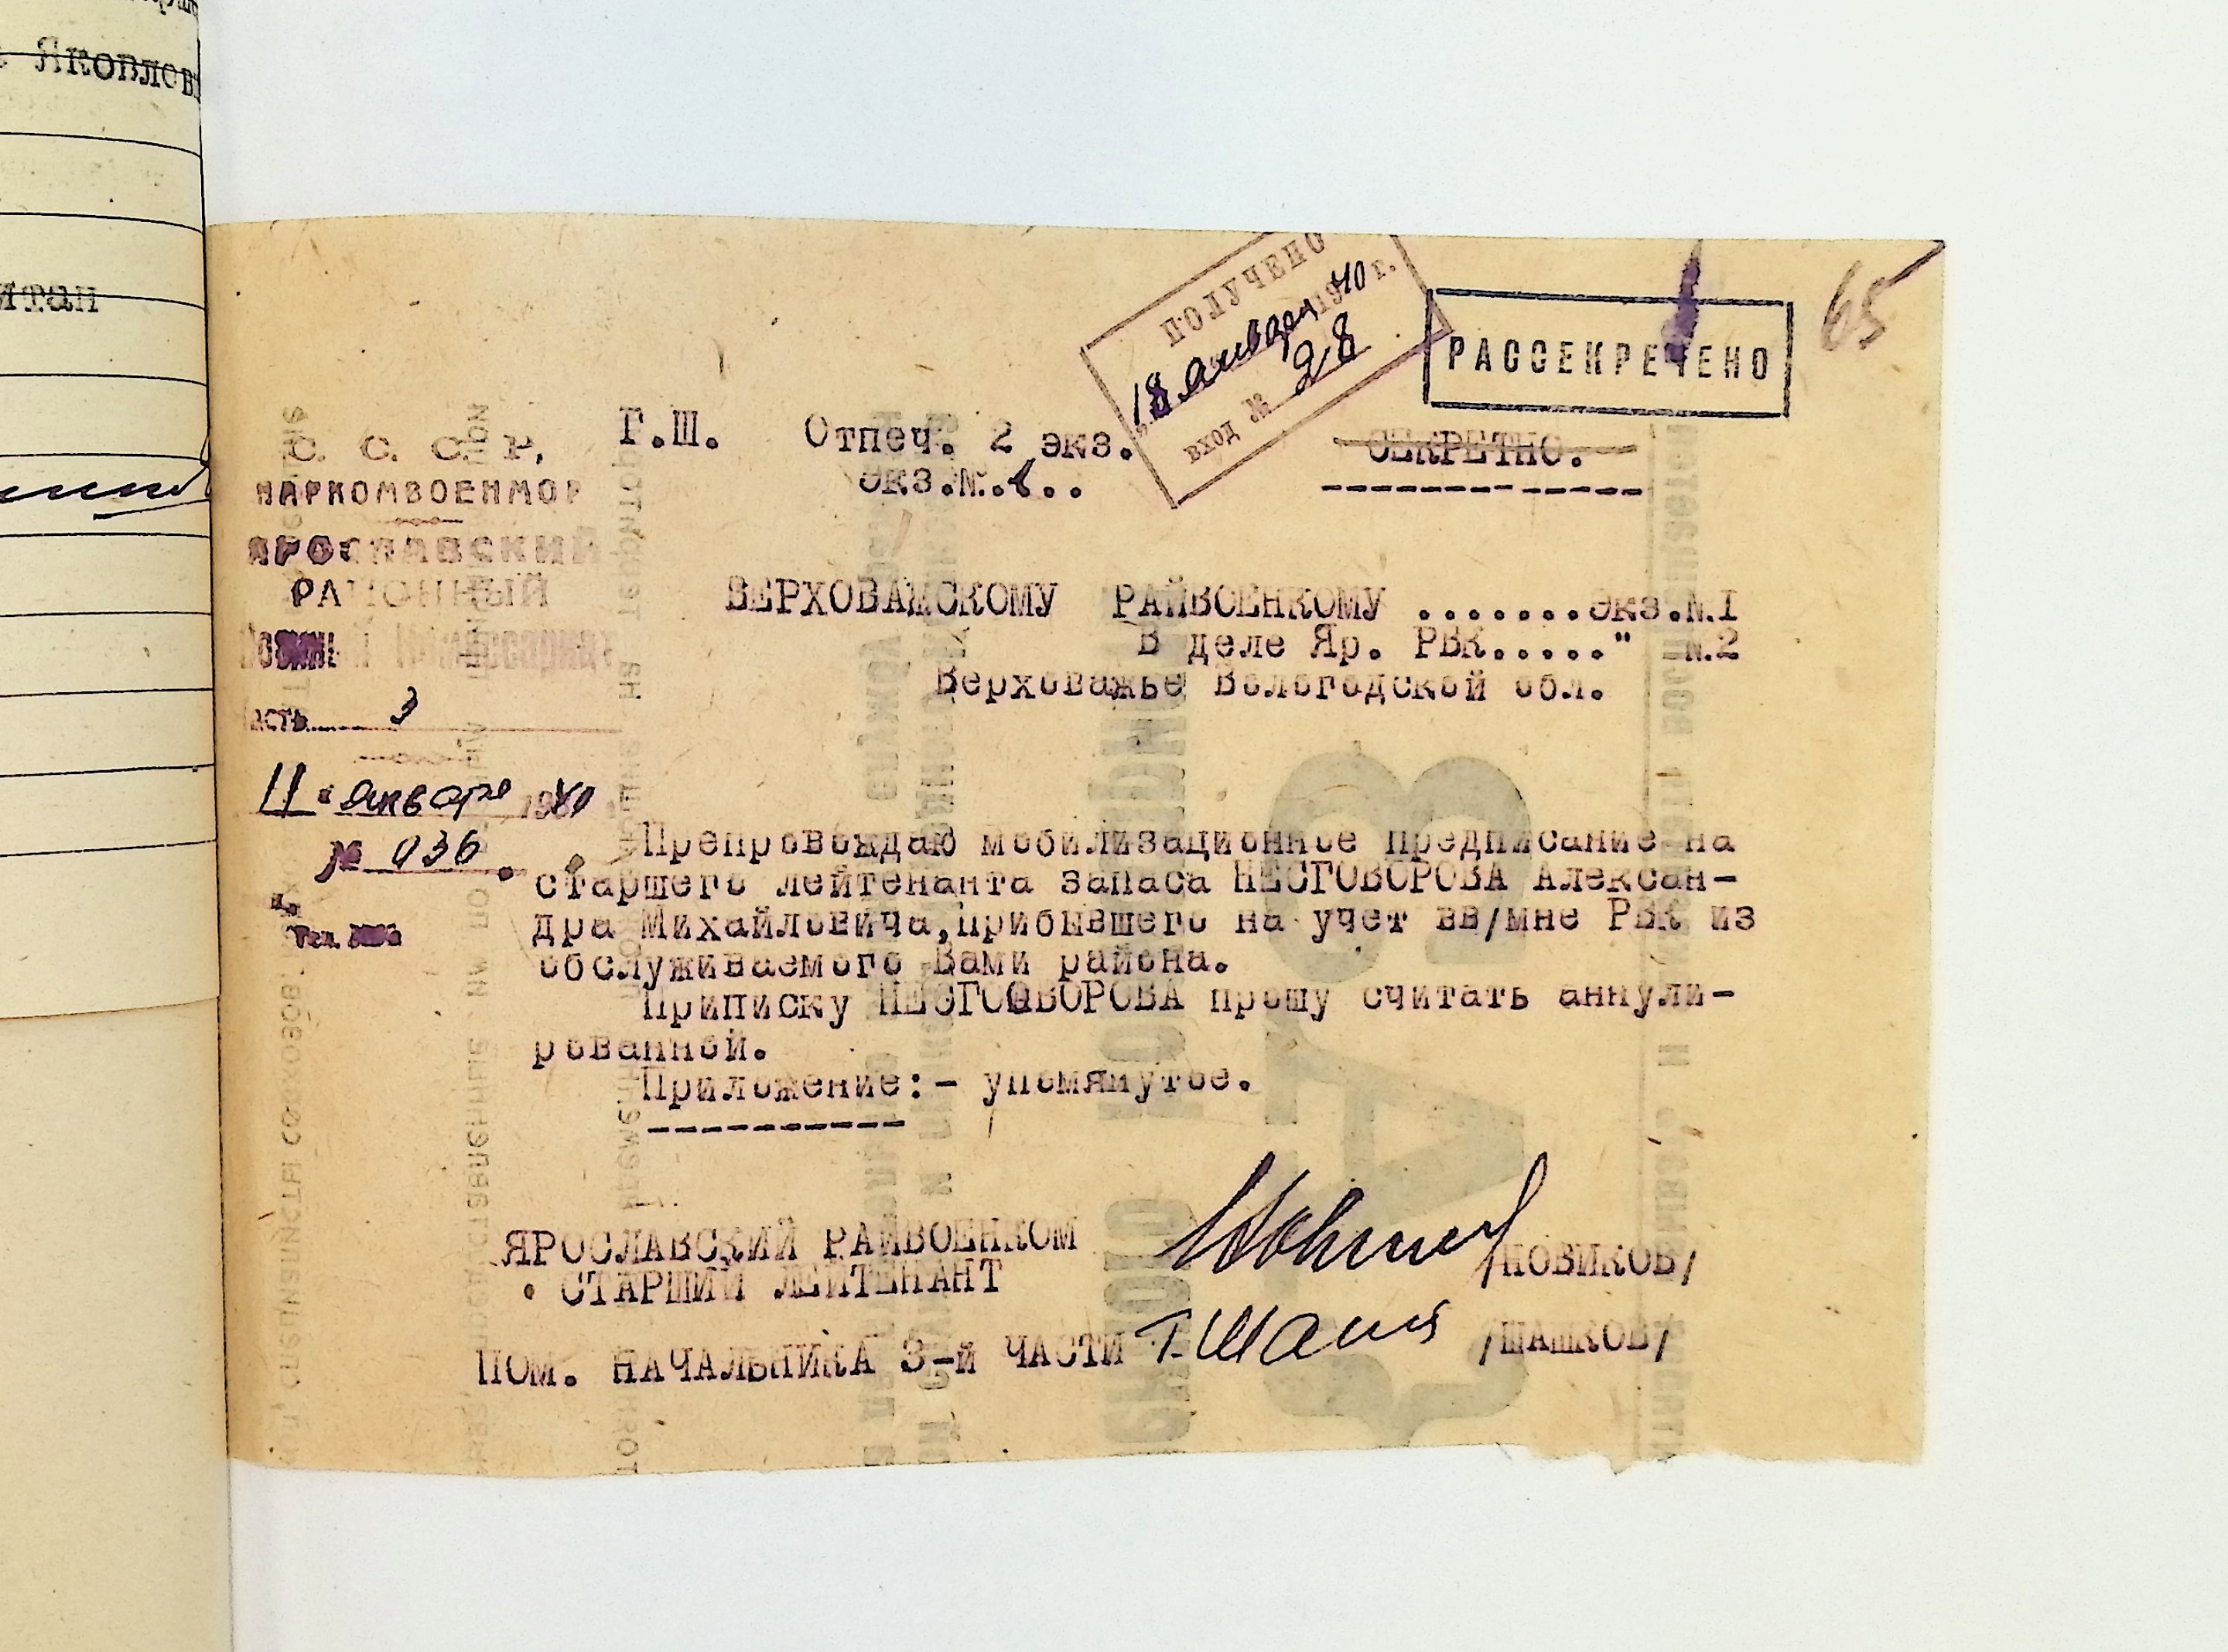 Яковлев
итан
65
ПОЛУЧЕНО
18 января 1940 г.
ВХОД № 28
РАССЕКРЕЧЕНО
СЕКРЕТНО.
Г.Ш. Отпеч. 2 экз.
Экз.№.1..
С. С. С. Р.
НАРКОМВОЕНМОР
ЯРОСЛАВСКИЙ
РАЙОННЫЙ
Военный Комиссариат
Часть 3
11 января 1940
№ 036.
ВЕРХОВАЖСКОМУ РАЙВОЕНКОМУ .......Экз.№.1
В деле Яр. РВК....." №.2
Верховажье Вологодской обл.
Препровождаю мобилизационное предписание на
старшего лейтенанта запаса НЕСГОВОРОВА Алексан-
дра Михайловича,прибывшего на учет вв/мне РВК из
обслуживаемого Вами района.
Приписку НЕСГОВОРОВА прошу считать аннули-
рованной.
Приложение:- упомянутое.
ЯРОСЛАВСКИЙ РАЙВОЕНКОМ
СТАРШИЙ ЛЕЙТЕНАНТ /НОВИКОВ/
ПОМ. НАЧАЛЬНИКА 3-й ЧАСТИ /ШАШКОВ/